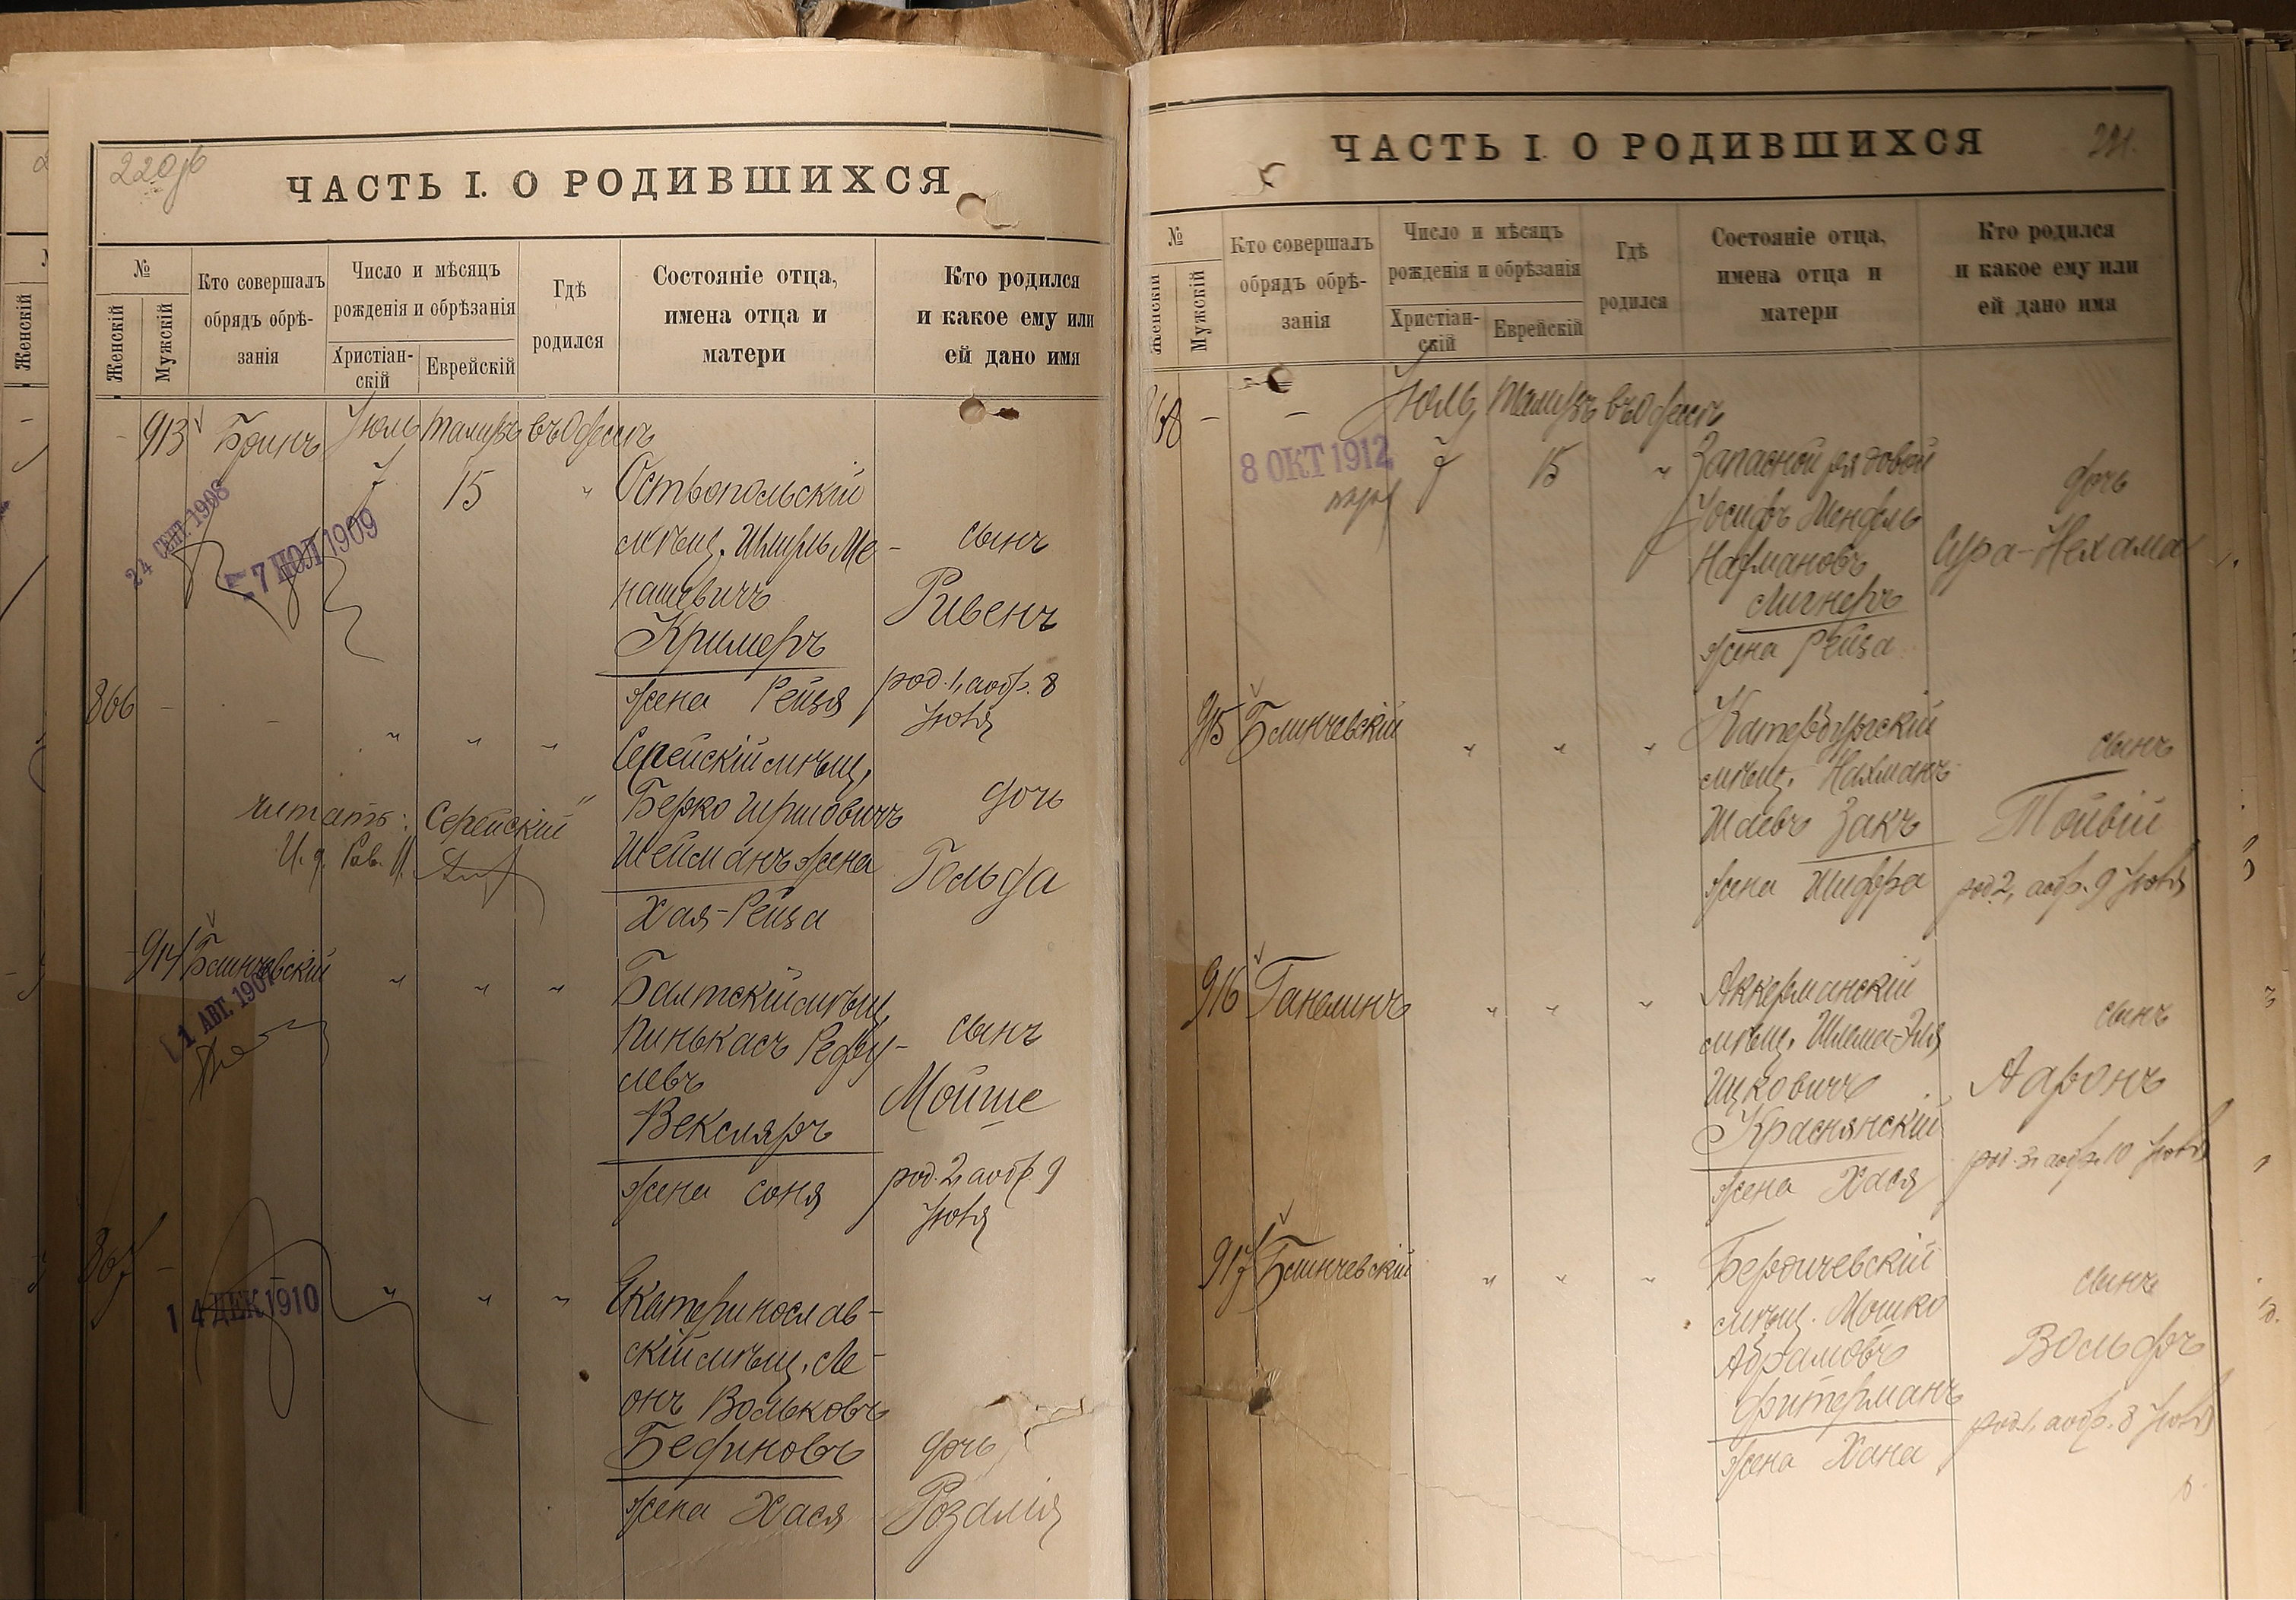 220об
ЧАСТЬ I. О РОДИВШИХСЯ
№
Женскій
Мужскій
Кто совершалъ
обрядъ обрѣ-
занія
Число и мѣсяцъ
рожденія и обрѣзанія
Христіан-
скій
Еврейскій
Гдѣ
родился
Состояніе отца,
имена отца и
матери
Кто родился
и какое ему или
ей дано имя
913 Іюль Тамузъ въ Одессѣ
7 15 "
Остропольскій
мѣщ. Шмуль Ме-
нашевичъ
Кримеръ
жена Рейзя
сынъ
Рувенъ
род. 1, а обр. 8
Іюля
24 СЕНТ. 1908
7 ІЮЛ 1909
866 - - " " "
Серейскій мѣщ.
Берко Гиршовичъ
Шейманъ жена
Хая-Рейза
дочь
Гольда
читать: "Серейскій"
И. д. Рав.
914 Блинчевскій " " "
Балтскій мѣщ.
Пинькасъ
Вексляръ
жена Соня
сынъ
Мойше
род. 2, а обр. 9
Іюля
1 АВГ. 1907
867 - - " " "
Екатеринослав-
скій мѣщ. Ле-
онъ Вольковъ
Бединовъ
жена Хася
дочь
Розалія
14 ДЕК 1910
ЧАСТЬ I. О РОДИВШИХСЯ
221.
№
Женскій
Мужскій
Кто совершалъ
обрядъ обрѣ-
занія
Число и мѣсяцъ
рожденія и обрѣзанія
Христіан-
скій
Еврейскій
Гдѣ
родился
Состояніе отца,
имена отца и
матери
Кто родился
и какое ему или
ей дано имя
868 - - Іюль Тамузъ въ Одессѣ
7 15 "
8 ОКТ 1912
Запасной рядовой
Іосифъ Мендель
жена Рейза
дочь
Сура-Нехама
915 Блинчевскій " " "
Катербургскій
мѣщ. Нахманъ
Шаевъ Закъ
жена Шифра
сынъ
Тойвій
род. 2, а обр. 9 Іюля
916 Ганелинъ " " "
Аккерманскій
мѣщ. Шлема-Эля
Ицковичъ
Краснянскій
жена Хася
сынъ
Ааронъ
род. 3, а обр. 10 Іюля
917 Блинчевскій " " "
Бердичевскій
мѣщ. Мошко
Абрамовъ
Фитерманъ
жена Хана
сынъ
Вольфъ
род. 1, а обр. 8 Іюля